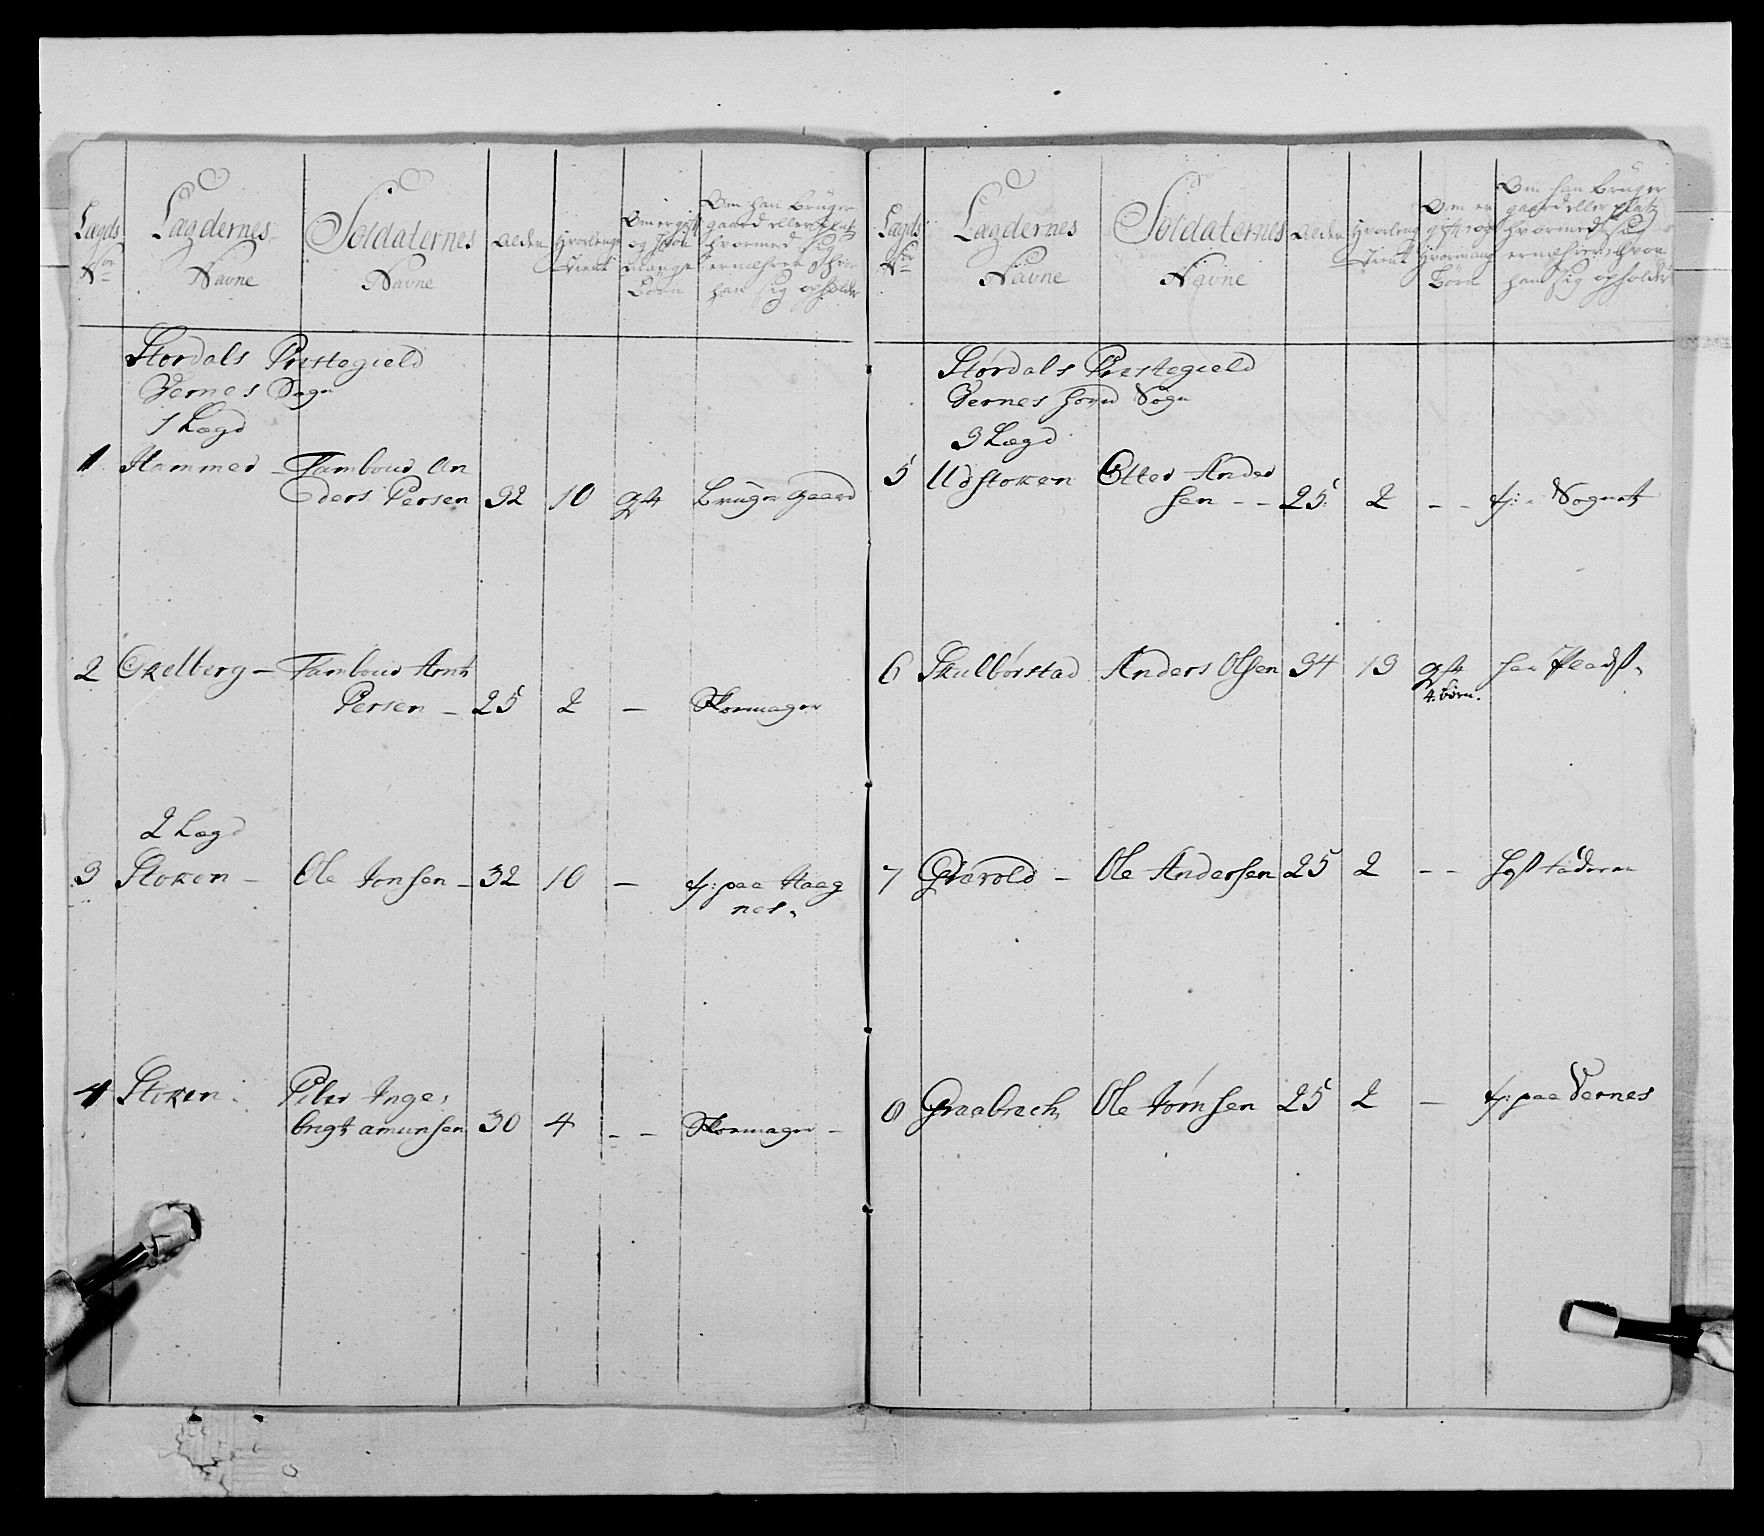 Lægds Nr
Lægdernes Navne
Soldaternes Navne
Alder
Hvorlenge Tient
Om er gift og hvor mange Børn
Om han bruger
gaard eller platz
hvormed Sig
ernæhrer og hvor
han Sig opholder
Stordals Prestegield
Vernes Sogn
1 Lægd
1 Hammer - Tambour An
ders Persen 32 10 gft Bruger gaard
2 Ekelberg - Tambour Arnt
Persen - 25 2 - Skomager
2 Lægd
3 Stoken - Ole Jonsen - 32 10 - tj: paa Haag
nes.
4 Stoken Peder Inge,
brigt amunsen 30 4 - - Skomager -
Lægds Nr
Lægdernes Navne
Soldaternes Navne
Alder
Hvorleng Tient
Om er gift og hvormang Børn
Om han bruger
gaard eller platz
hvormed Sig
ernæhrer, hvor
han Sig opholder
Størdals Prestegield
Vernes Sogn
3 Lægd
5 Udstoken Otter Ander
sen - - 25 2 - - tj: i Sognet
6 Skulbørstad Anders Olsen 34 13 gft har Plads.
4 børn.
7 Ole Andersen 25 2 - -
8 Graabrech Ole Jonsen 25 2 - tj: paa Vernes